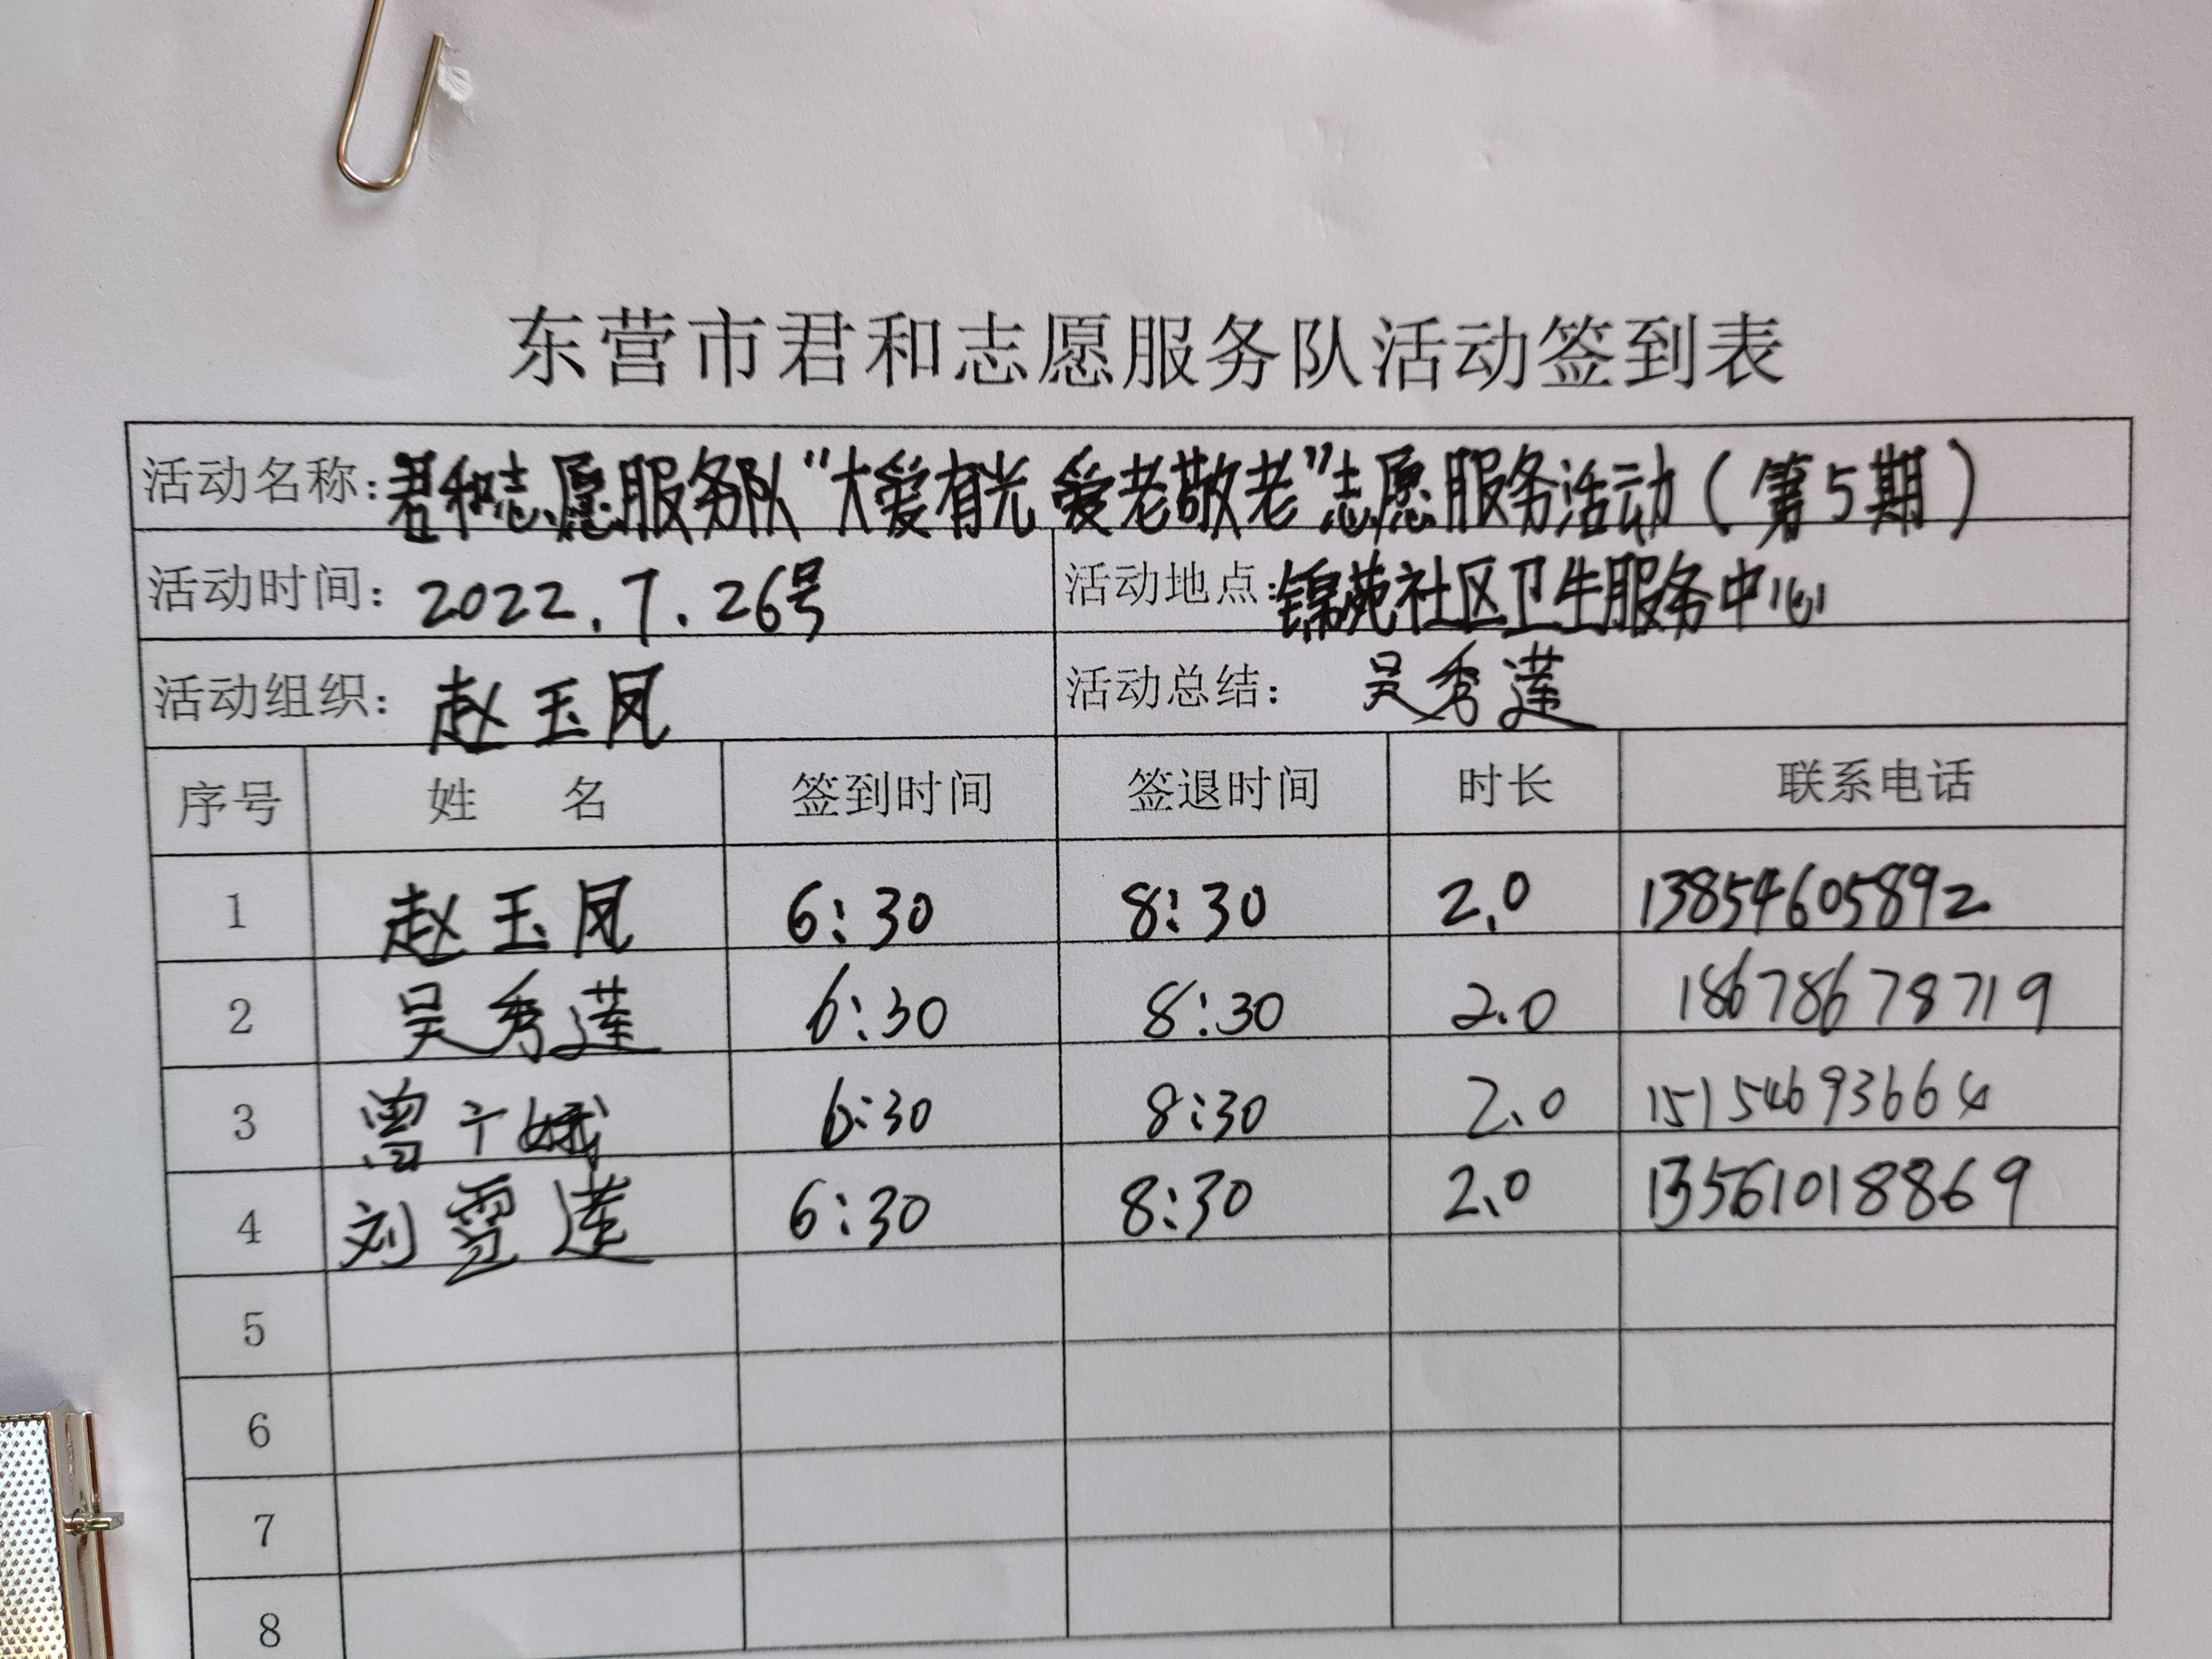 东营市君和志愿服务队活动签到表
活动名称:君和志愿服务队“大爱有光 爱老敬老”志愿服务活动(第5期)
活动时间: 2022.7.26号 活动地点:锦苑社区卫生服务中心
活动组织: 赵玉凤 活动总结: 吴秀莲
序号 姓 名 签到时间 签退时间 时长 联系电话
1 赵玉凤 6:30 8:30 2.0 13854605892
2 吴秀莲 6:30 8:30 2.0 18678678719
3 曾 娥 6:30 8:30 2.0 15154693664
4 刘雪莲 6:30 8:30 2.0 13561018869
5
6
7
8